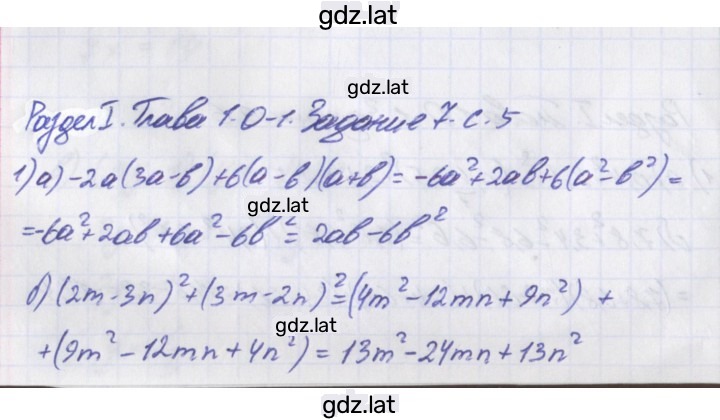 gdz.lat
gdz.lat
Раздел I. Глава 1. О-1. Задание 7. с. 5
1) а) -2a(3a-b)+6(a-b)(a+b) = -6a²+2ab+6(a²-b²) =
gdz.lat
= -6a²+2ab+6a²-6b² = 2ab-6b²
б) (2m-3n)²+(3m-2n)² = (4m²-12mn+9n²) +
gdz.lat
+(9m²-12mn+4n²) = 13m²-24mn+13n²
gdz.lat